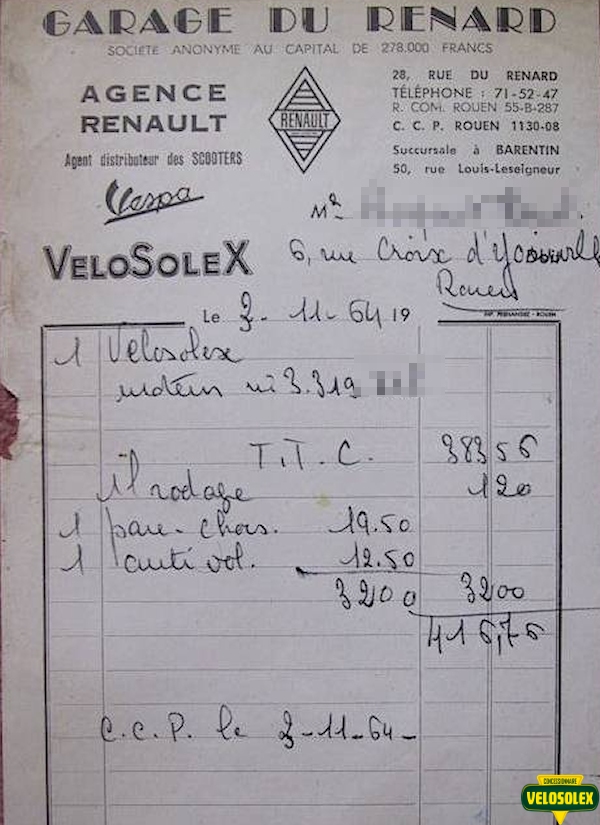 GARAGE DU RENARD
SOCIÉTÉ ANONYME AU CAPITAL DE 278.000 FRANCS
AGENCE
RENAULT
Agent distributeur des SCOOTERS
Vespa
VELOSOLEX
RENAULT
28, RUE DU RENARD
TÉLÉPHONE : 71-52-47
R. COM. ROUEN 55-B-287
C. C. P. ROUEN 1130-08
Succursale à BARENTIN
50, rue Louis-Leseigneur
Mr
6, rue Croix d'Yonville
Rouen
Le 3-11-64 19
IMP. FERNANDEZ - ROUEN
1 Velosolex
moteur n° 3.319
T.T.C. 383 56
1l rodage 1 20
1 pare-chocs. 19.50
1 anti vol. 12.50
3200 3200
416,76
C.C.P. le 3-11-64-
CONCESSIONNAIRE
VELOSOLEX